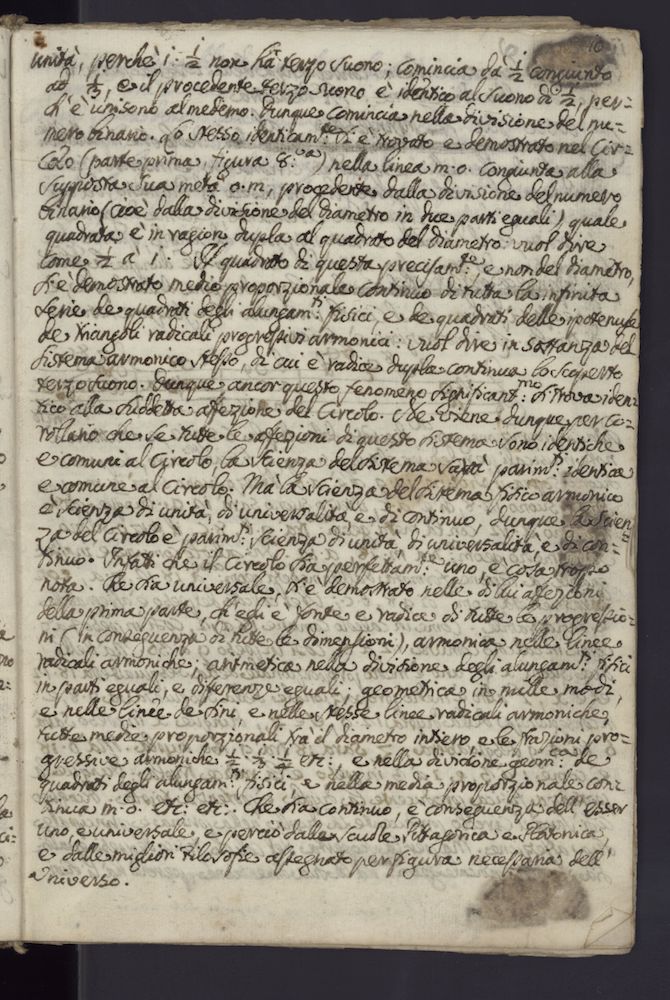 10
unità, perchè 1: 1/2 non hà terzo suono; comincia dà 1/2 congiunto
ad 1/3, e il procedente terzo suono è identico al suono di 1/2, per=
ch'è unisono al medemo. Dunque comincia nella divisione del nu=
mero binario. Lo stesso identicam:te si è trovato e demostrato nel Cir=
colo (parte prima, figura 8:va) nella linea m.o. congiunta alla
supposta sua metà o.m, procedente dalla divisione del numero
binario (cioè dalla divisione del diametro in due parti eguali) quale
quadrata è in ragion dupla al quadrato del diametro: vuol dire
come 1/2 à 1: Il quadrato di questa precisam:te, e non del diametro,
s'è demostrato medio proporzionale continuo di tutta la infinita
serie de quadrati degli alungam:ti fisici, e de quadrati delle ipotenuse
de triangoli radicali progressivi armonici: vuol dire in sostanza del
sistema armonico stesso, di cui è radice dupla continua lo scoperto
terzo suono. Dunque ancor questo fenomeno significant:mo si trova iden=
tico alla suddetta affezione del Circolo. Ne viene dunque per co=
rollario che se tutte le affezioni di questo sistema sono identiche
e comuni al Circolo, la scienza del sistema sarà parim:ti identica
e comune al Circolo. Mà la scienza del sistema fisico armonico
è scienza di unità, di universalità e di continuo, dunque la scien=
za del Circolo è parim:ti scienza di unità, di universalità, e di con=
tinuo. Infatti che il Circolo sia perfettam:te uno, è cosa troppo
nota. Che sia universale, s'è demostrato nelle di lui affezioni
della prima parte, ch'egli è fonte e radice di tutte le progressio=
ni (in conseguenza di tutte le dimensioni), armonica nelle linee
radicali armoniche; aritmetica nella divisione degli alungam:ti fisici
in parti eguali, e diferenze eguali; geometrica in mille modi,
e nelle linee de sini, e nelle stesse linee radicali armoniche,
tutte medie proporzionali frà il diametro intiero e le frazioni pro=
gressive armoniche 1/2. 1/3. 1/4 etc:, e nella divisione geom:ca de
quadrati degli alungam:ti fisici, e nella media proporzionale con=
tinua m.o. etc: etc:. Che sia continuo, è conseguenza dell'esser
uno, e universale, e perciò dalle scuole Pitagorica e Platonica,
e dalle migliori Filosofie assegnato per figura necessaria dell'
Universo.